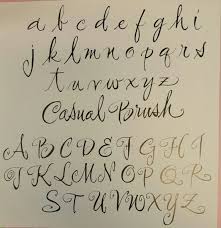 a b c d e f g h i
j k l m n o p q r s
t u v w x y z
Casual Brush
A B C D E F G H I
J K L M N O P Q R
S T U V W X Y Z